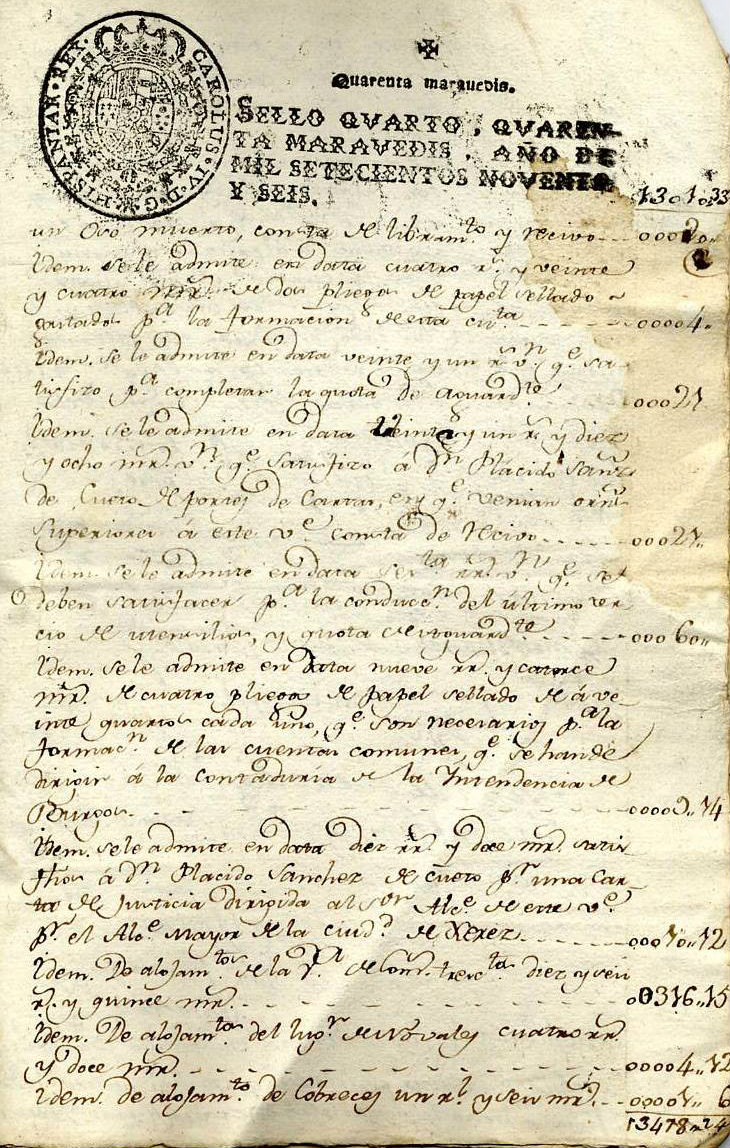 CAROLUS·IV·D·G·HISPANIAR·REX·
Quarenta marauedis.
SELLO QVARTO, QVAREN-
TA MARAVEDIS, AÑO DE
MIL SETECIENTOS NOVENTA
Y SEIS.
1301..33
un Oso muerto, consta de libram.to y recivo
Idem. se le admite en data cuatro r.s y veinte
y cuatro mrs. de dos pliegos de papel sellado
gastados p.a la formacion de esta cu.ta 00004..
Idem. se le admite en data veinte y un r.s v.n q.e sa-
tisfizo p.a completar la quota de aguard.te 00021
Idem. se le admite en data veinte y un r.s y diez
y ocho mrs. v.n q.e satisfizo á D.n Plácido Sanz
de Cueto de portes de Cartas, en q.e venian orns
Superiores á este v.e consta de recivo 00021..
Idem. se le admite en data ses.ta rr.s v.n q.e se
deben satisfacer p.a la conducc.n del último ter
cio de utensilios, y quota de aguard.te 00060..
Idem. se le admite en data nueve rr. y catorce
mrs. de cuatro pliegos de papel sellado de á ve-
inte quartos cada uno, q.e son necesarios p.a la
formac.n de las cuentas comunes, q.e se han de
dirigir á la contaduria de la Intendencia de
Burgos. 00009..14
Idem. se le admite en data diez rr. y doce mrs. satis
fhos á D.n Placido Sanchez de Cueto p.r una Car-
ta de Justicia dirigida al S.or Alc.e de este v.e
p.r el Alc.e Mayor de la ciud.d de Xerez 00010..12
Idem. De alojam.tos de la V.a de Com.s tresc.tos diez y seis
r.s y quince mrs. 00316..15
Idem. De alojam.tos del lug.r de Novales cuatro rr.
y doce mrs. 00004..12
Idem. de alojam.to de Cobreces un r.l y seis mrs. 00001..6
13478..24